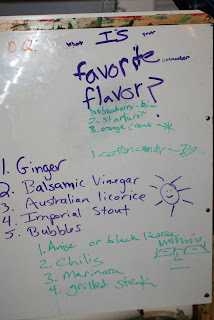 D.Q.
What IS your
favorite
flavor?
2. Starburst
3. orange creme
1. cotton candy
1. Ginger
2. Balsamic Vinegar
3. Australian licorice
4. Imperial Stout
5. Bubbles
1. Anise or black licorice
2. Chilis
3. marinara
4. grilled steak